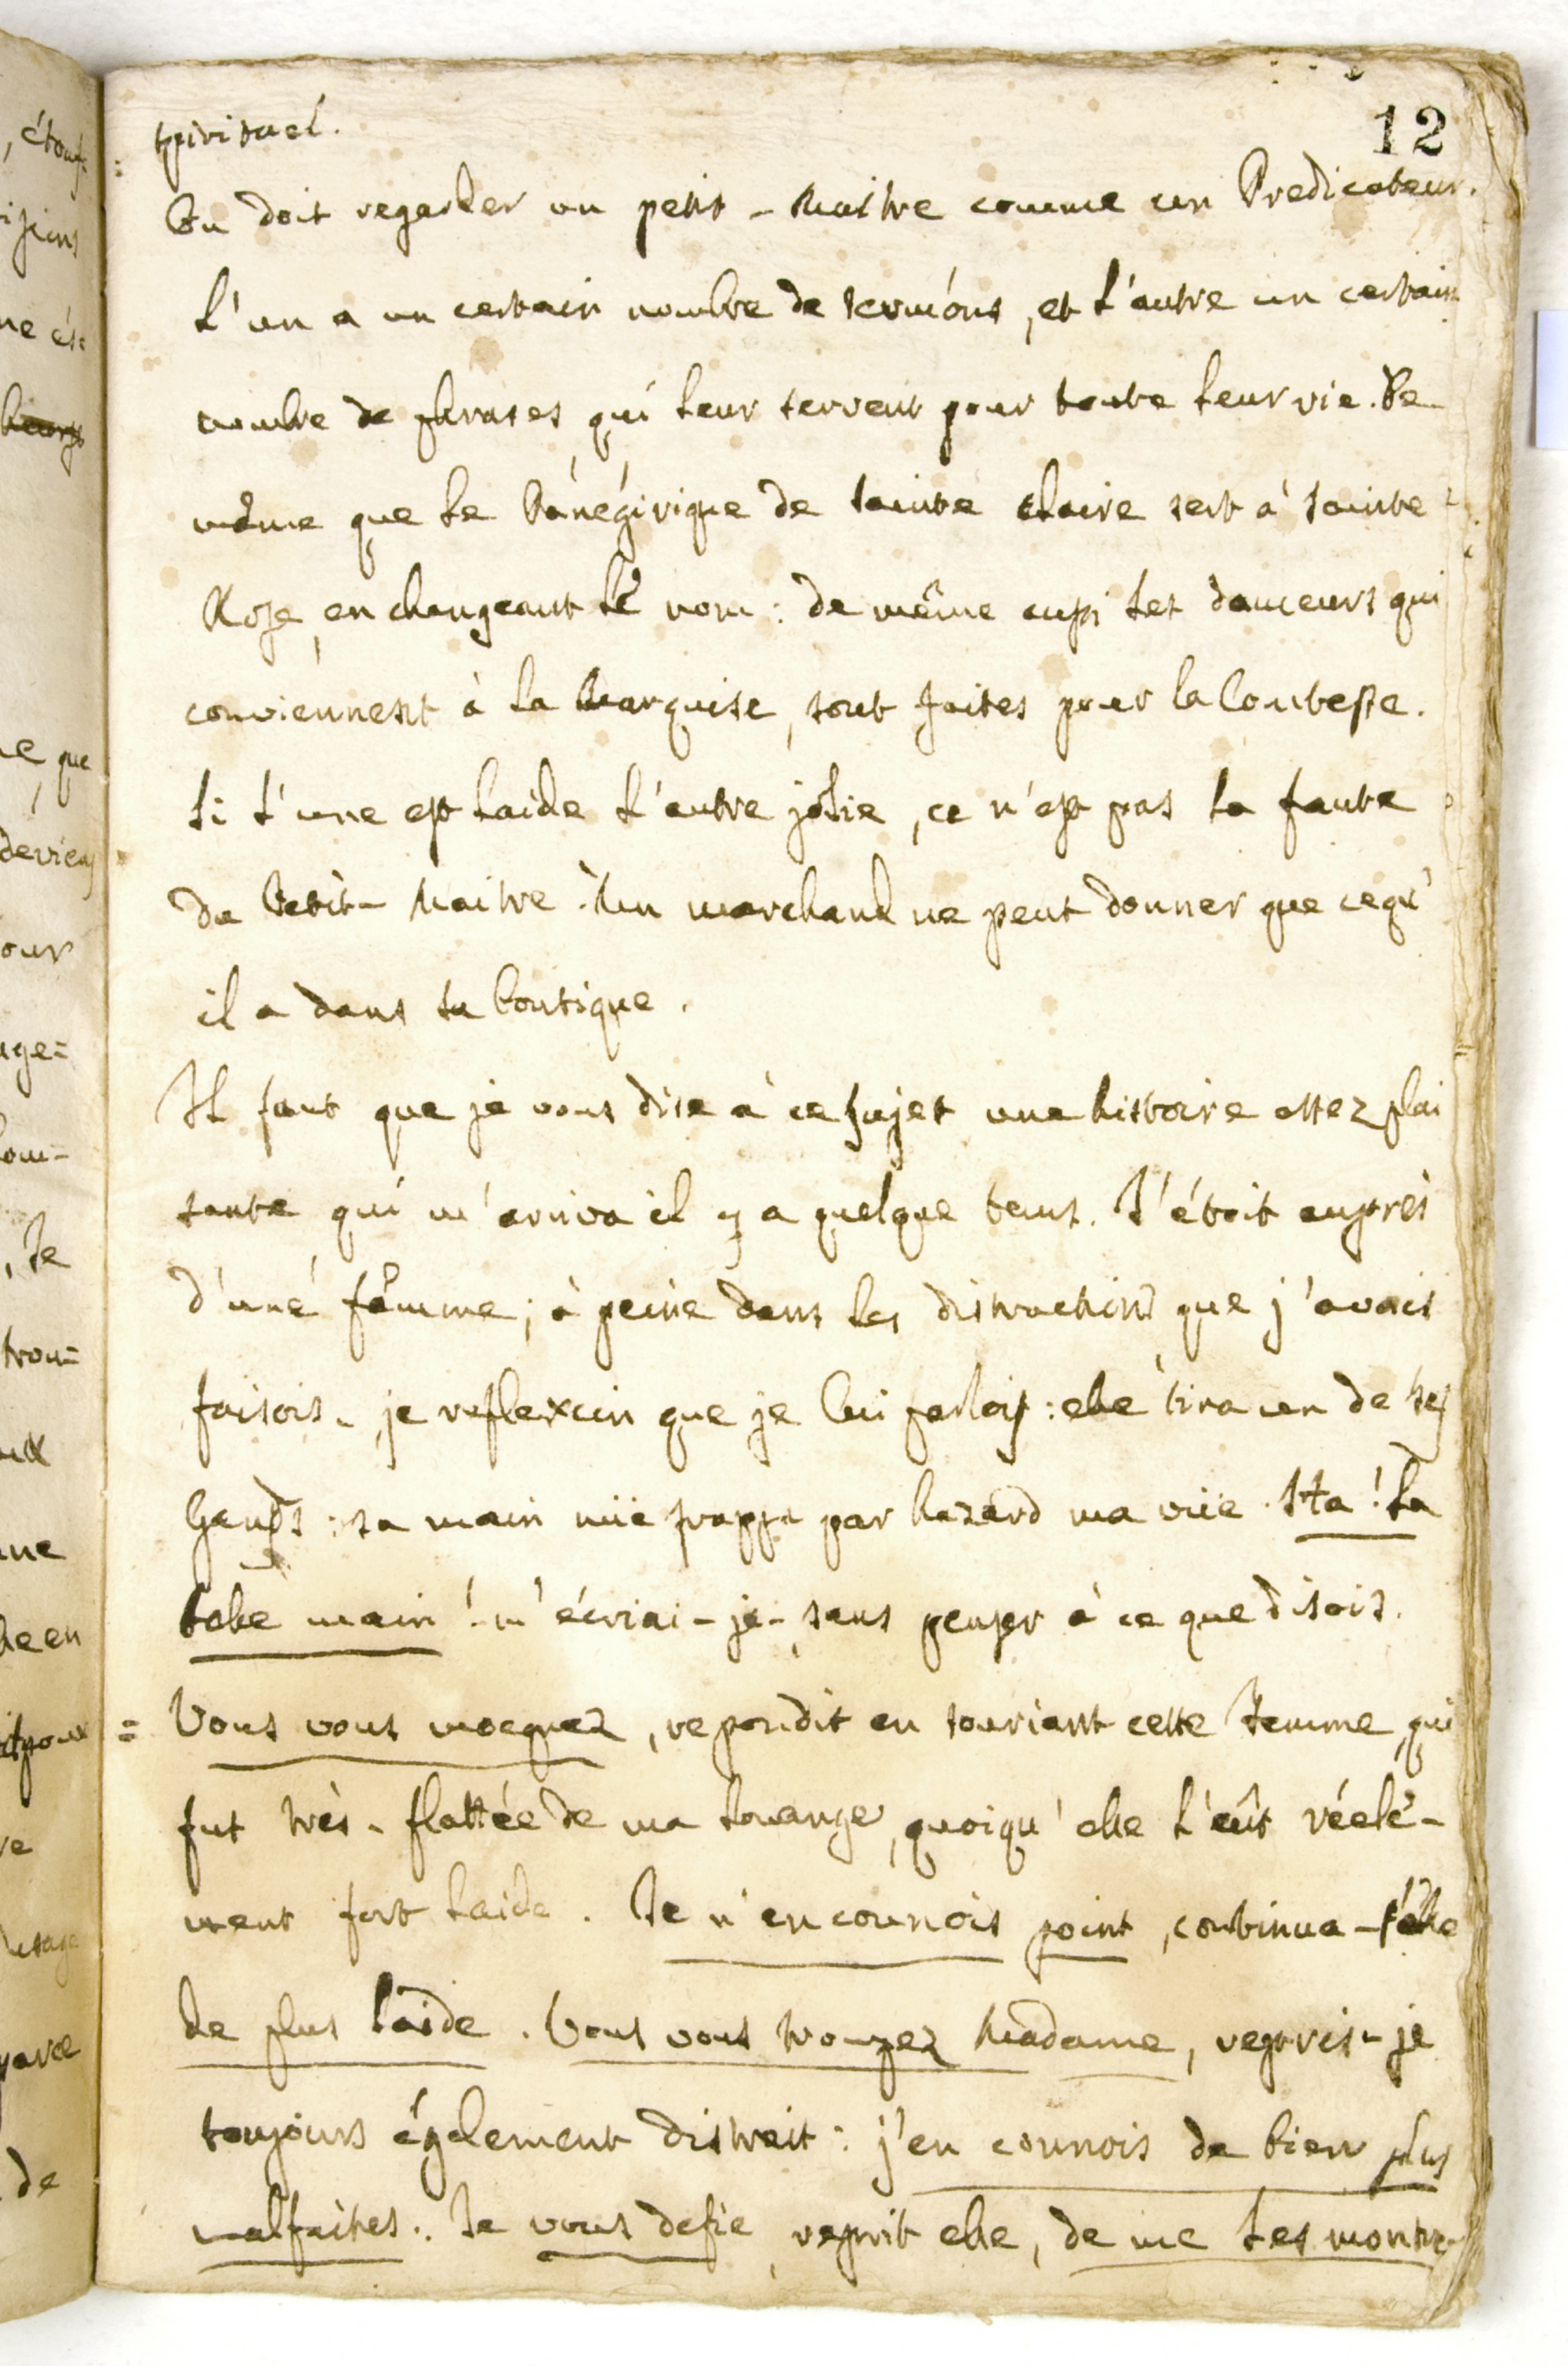 12
= spirituel.
On doit regarder un petit-Maitre comme un Predicateur.
L'un a un certain nombre de sermóns, et l'autre un certain
nombre de phrases, qui leur servent pour toute leur vie. De
même que le Pánégirique de sainte Claire sert à sainte
Rose, en changeant le nom: de même aussi les douceurs qui
conviennent à la Marquise, sont faites pour la Contesse.
Si l'une est laide l'autre jolie, ce n'est pas la faute
du Petit-Maitre. Un marchand ne peut donner que cequ'
il a dans sa boutique.
Il faut que je vous dise à ce sujet une histoire assez plai
sante qui m'arriva il y a quelque tems. J'étoit auprès
d'une fâmme; à peine dans les distractions que j'avais
faisois, je reflexcin que je lui parlois: elle tira un de ses
Gands: sa main nüe frappa par hazard ma vüe. Ha! La
belle main! m'écriai-je, sans penser à ce que disois.
= Vous vous mocquez, repondit en souriant cette Femme, qui
fut très-flattée de ma louange, quoiqu'elle l'eût réelé-
ment fort laide. Je n'en connois point, continua-t'elle
de plus laide. Vous vous trompez Madame, repris-je
toujours également distrait: j'en connois de bien plus
malfaites. Je vous defie, reprit elle, de me les montre-